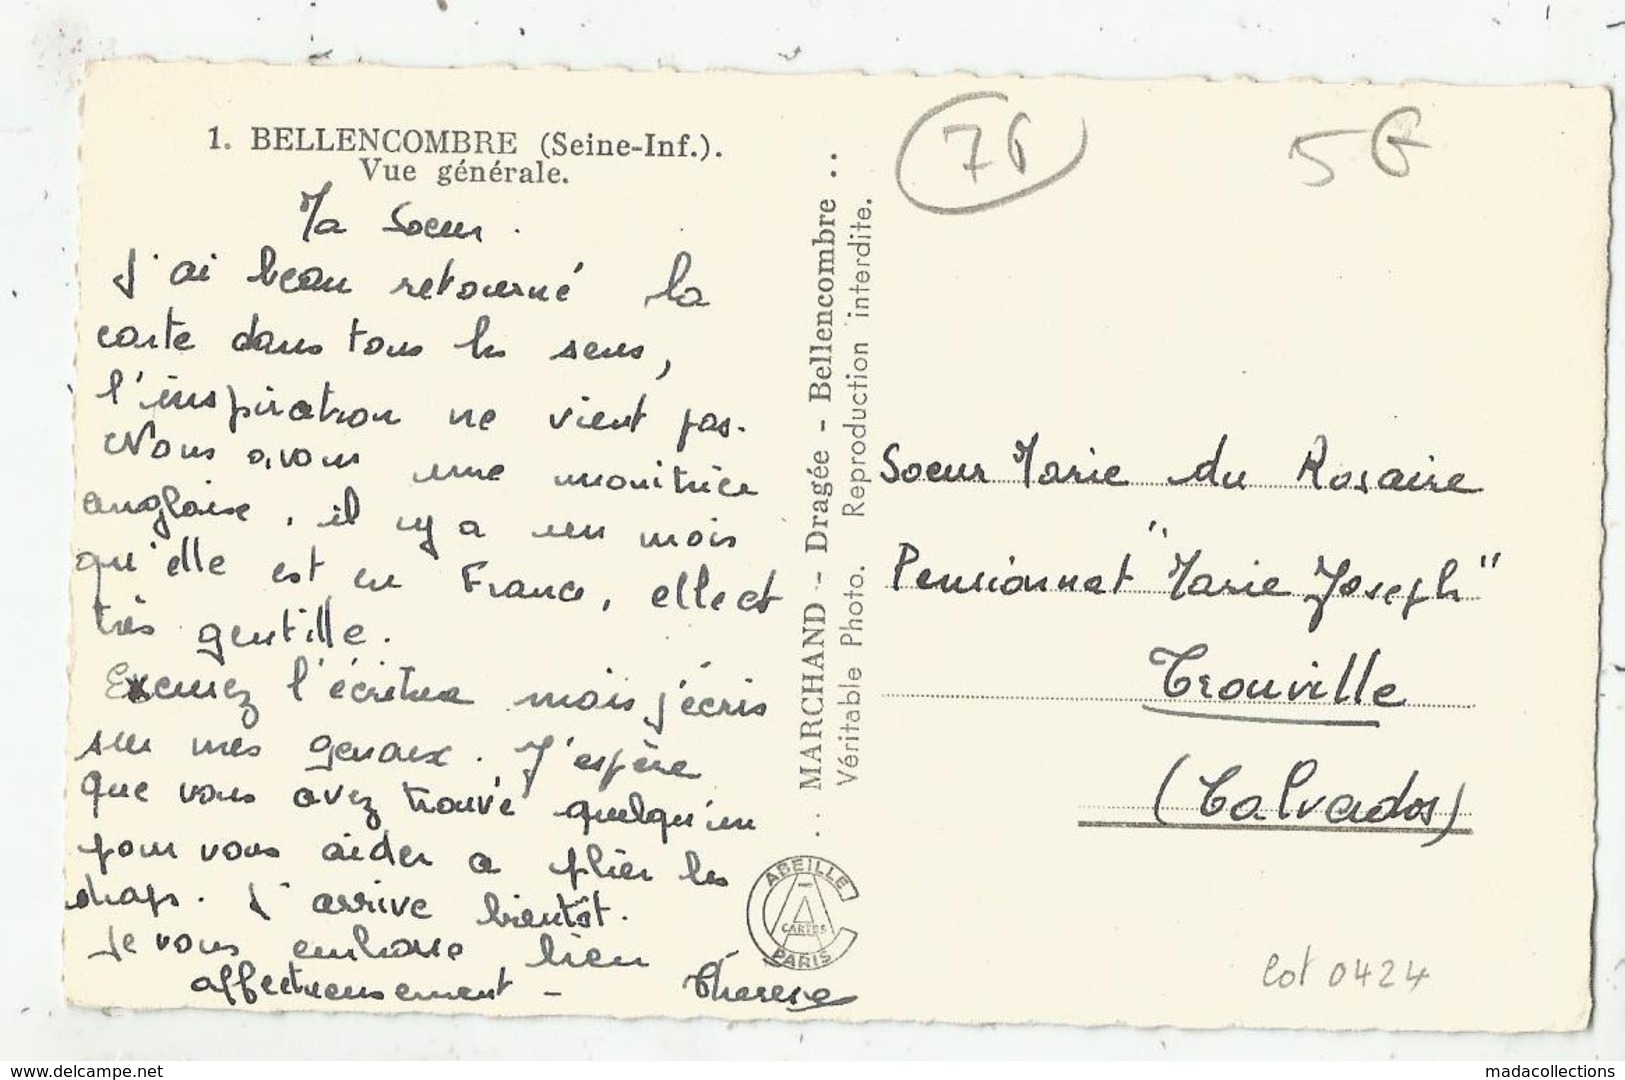 1. BELLENCOMBRE (Seine-Inf.).
Vue générale.
Ma Soeur.
J'ai beau retourné la
carte dans tous les sens,
l'inspiration ne vient pas.
Nous avons une monitrice
anglaise, il y a un mois
qu'elle est en France, elle est
très gentille.
Excusez l'écriture mais j'écris
sur mes genoux. J'espère
que vous avez trouvé quelqu'un
pour vous aider a plier les
draps. J'arrive bientôt.
Je vous embrasse bien
affectueusement - Thérèse
MARCHAND - Dragée - Bellencombre
Véritable Photo. Reproduction interdite.
ABEILLE
CARTES
PARIS
76
5€
Soeur Marie du Rosaire
Pensionnat "Marie Joseph"
Trouville
(Calvados)
lot 0424
www.delcampe.net
madacollections